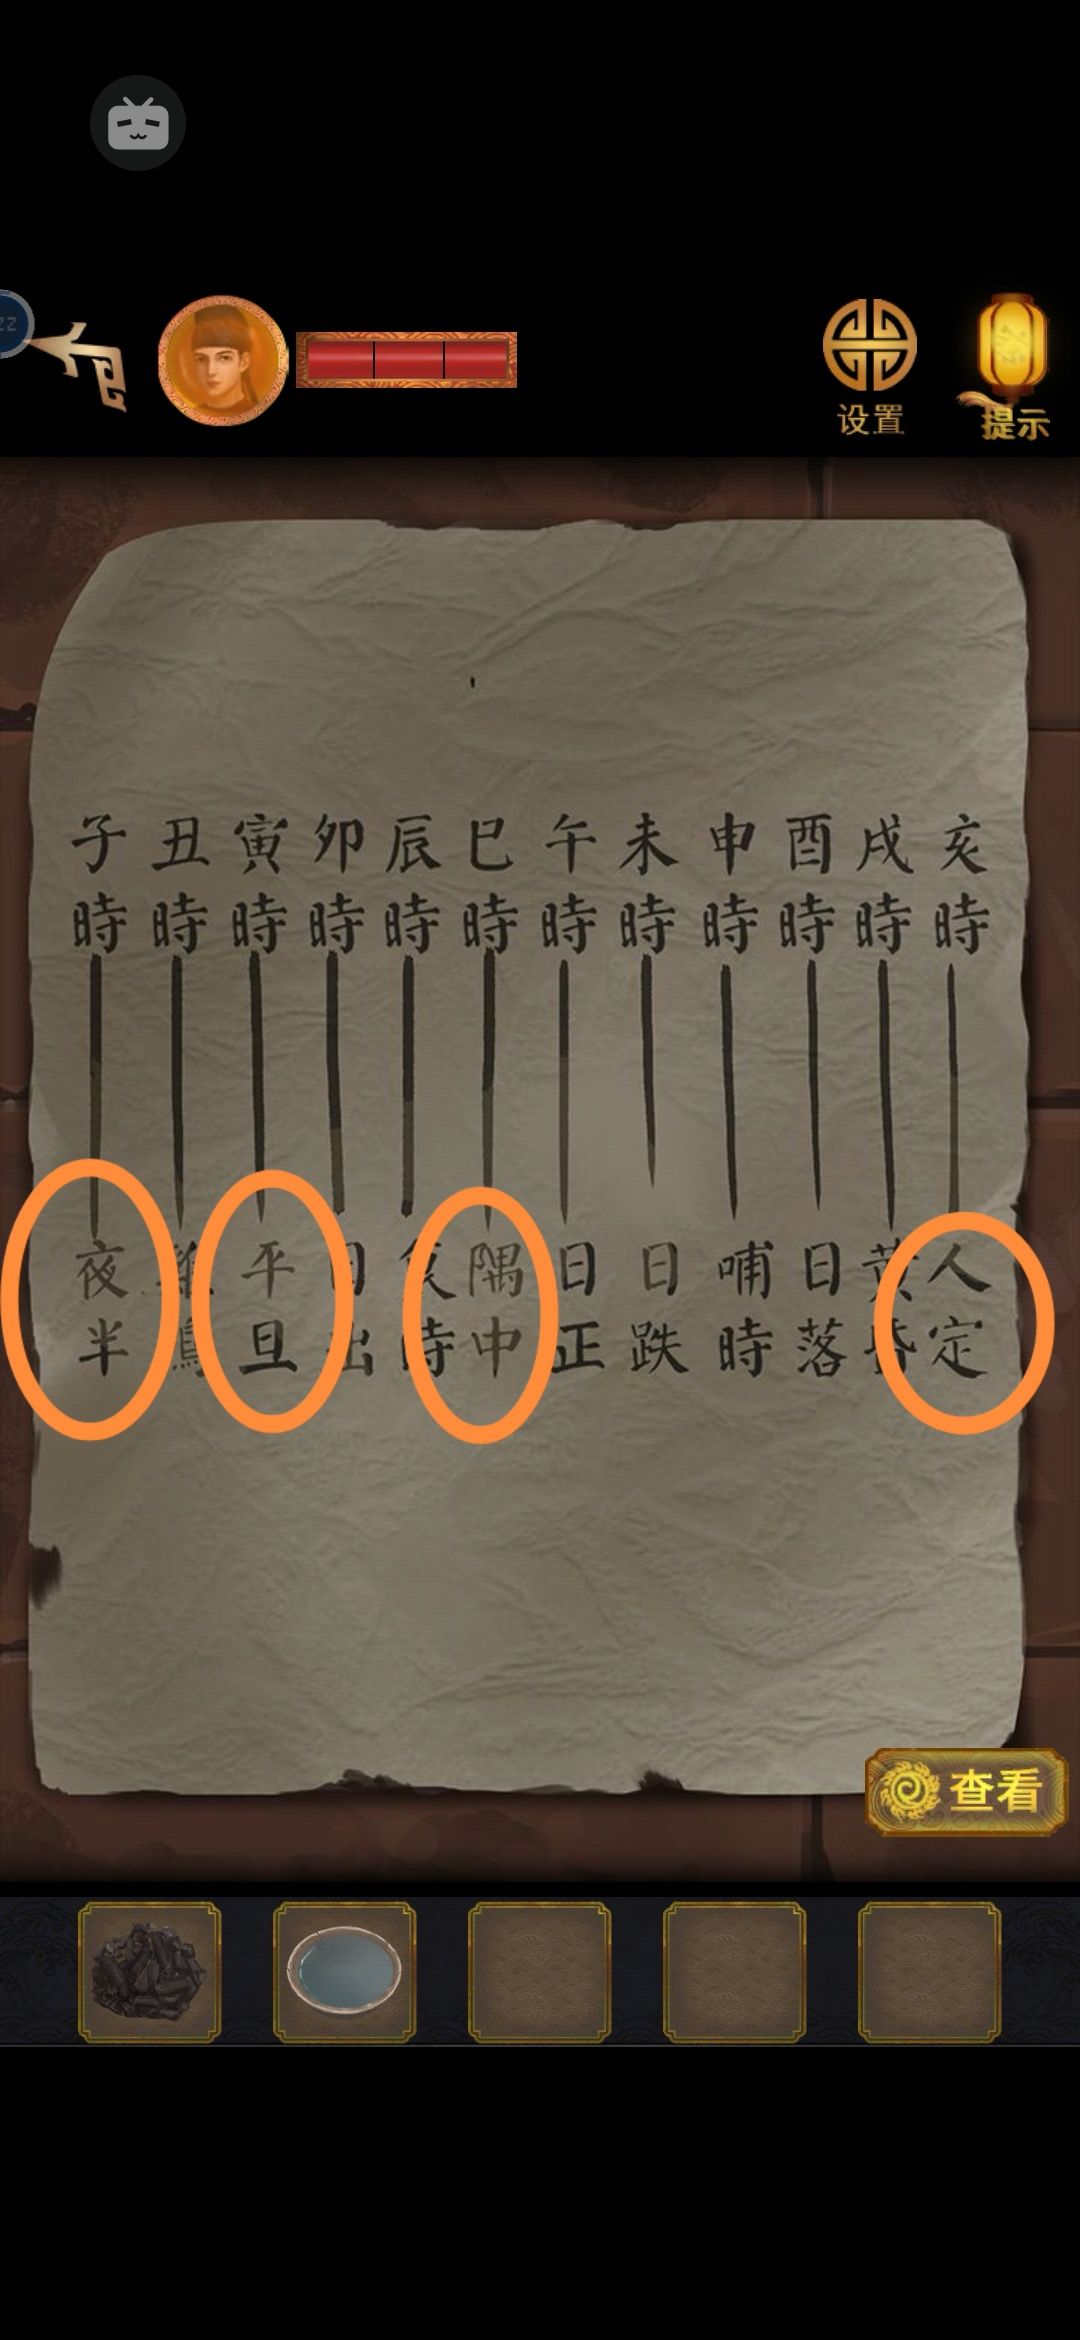 设置
提示
子時
夜半
丑時
雞鳴
寅時
平旦
卯時
日出
辰時
食時
巳時
隅中
午時
日正
未時
日跌
申時
哺時
酉時
日落
戌時
黄昏
亥時
人定
查看